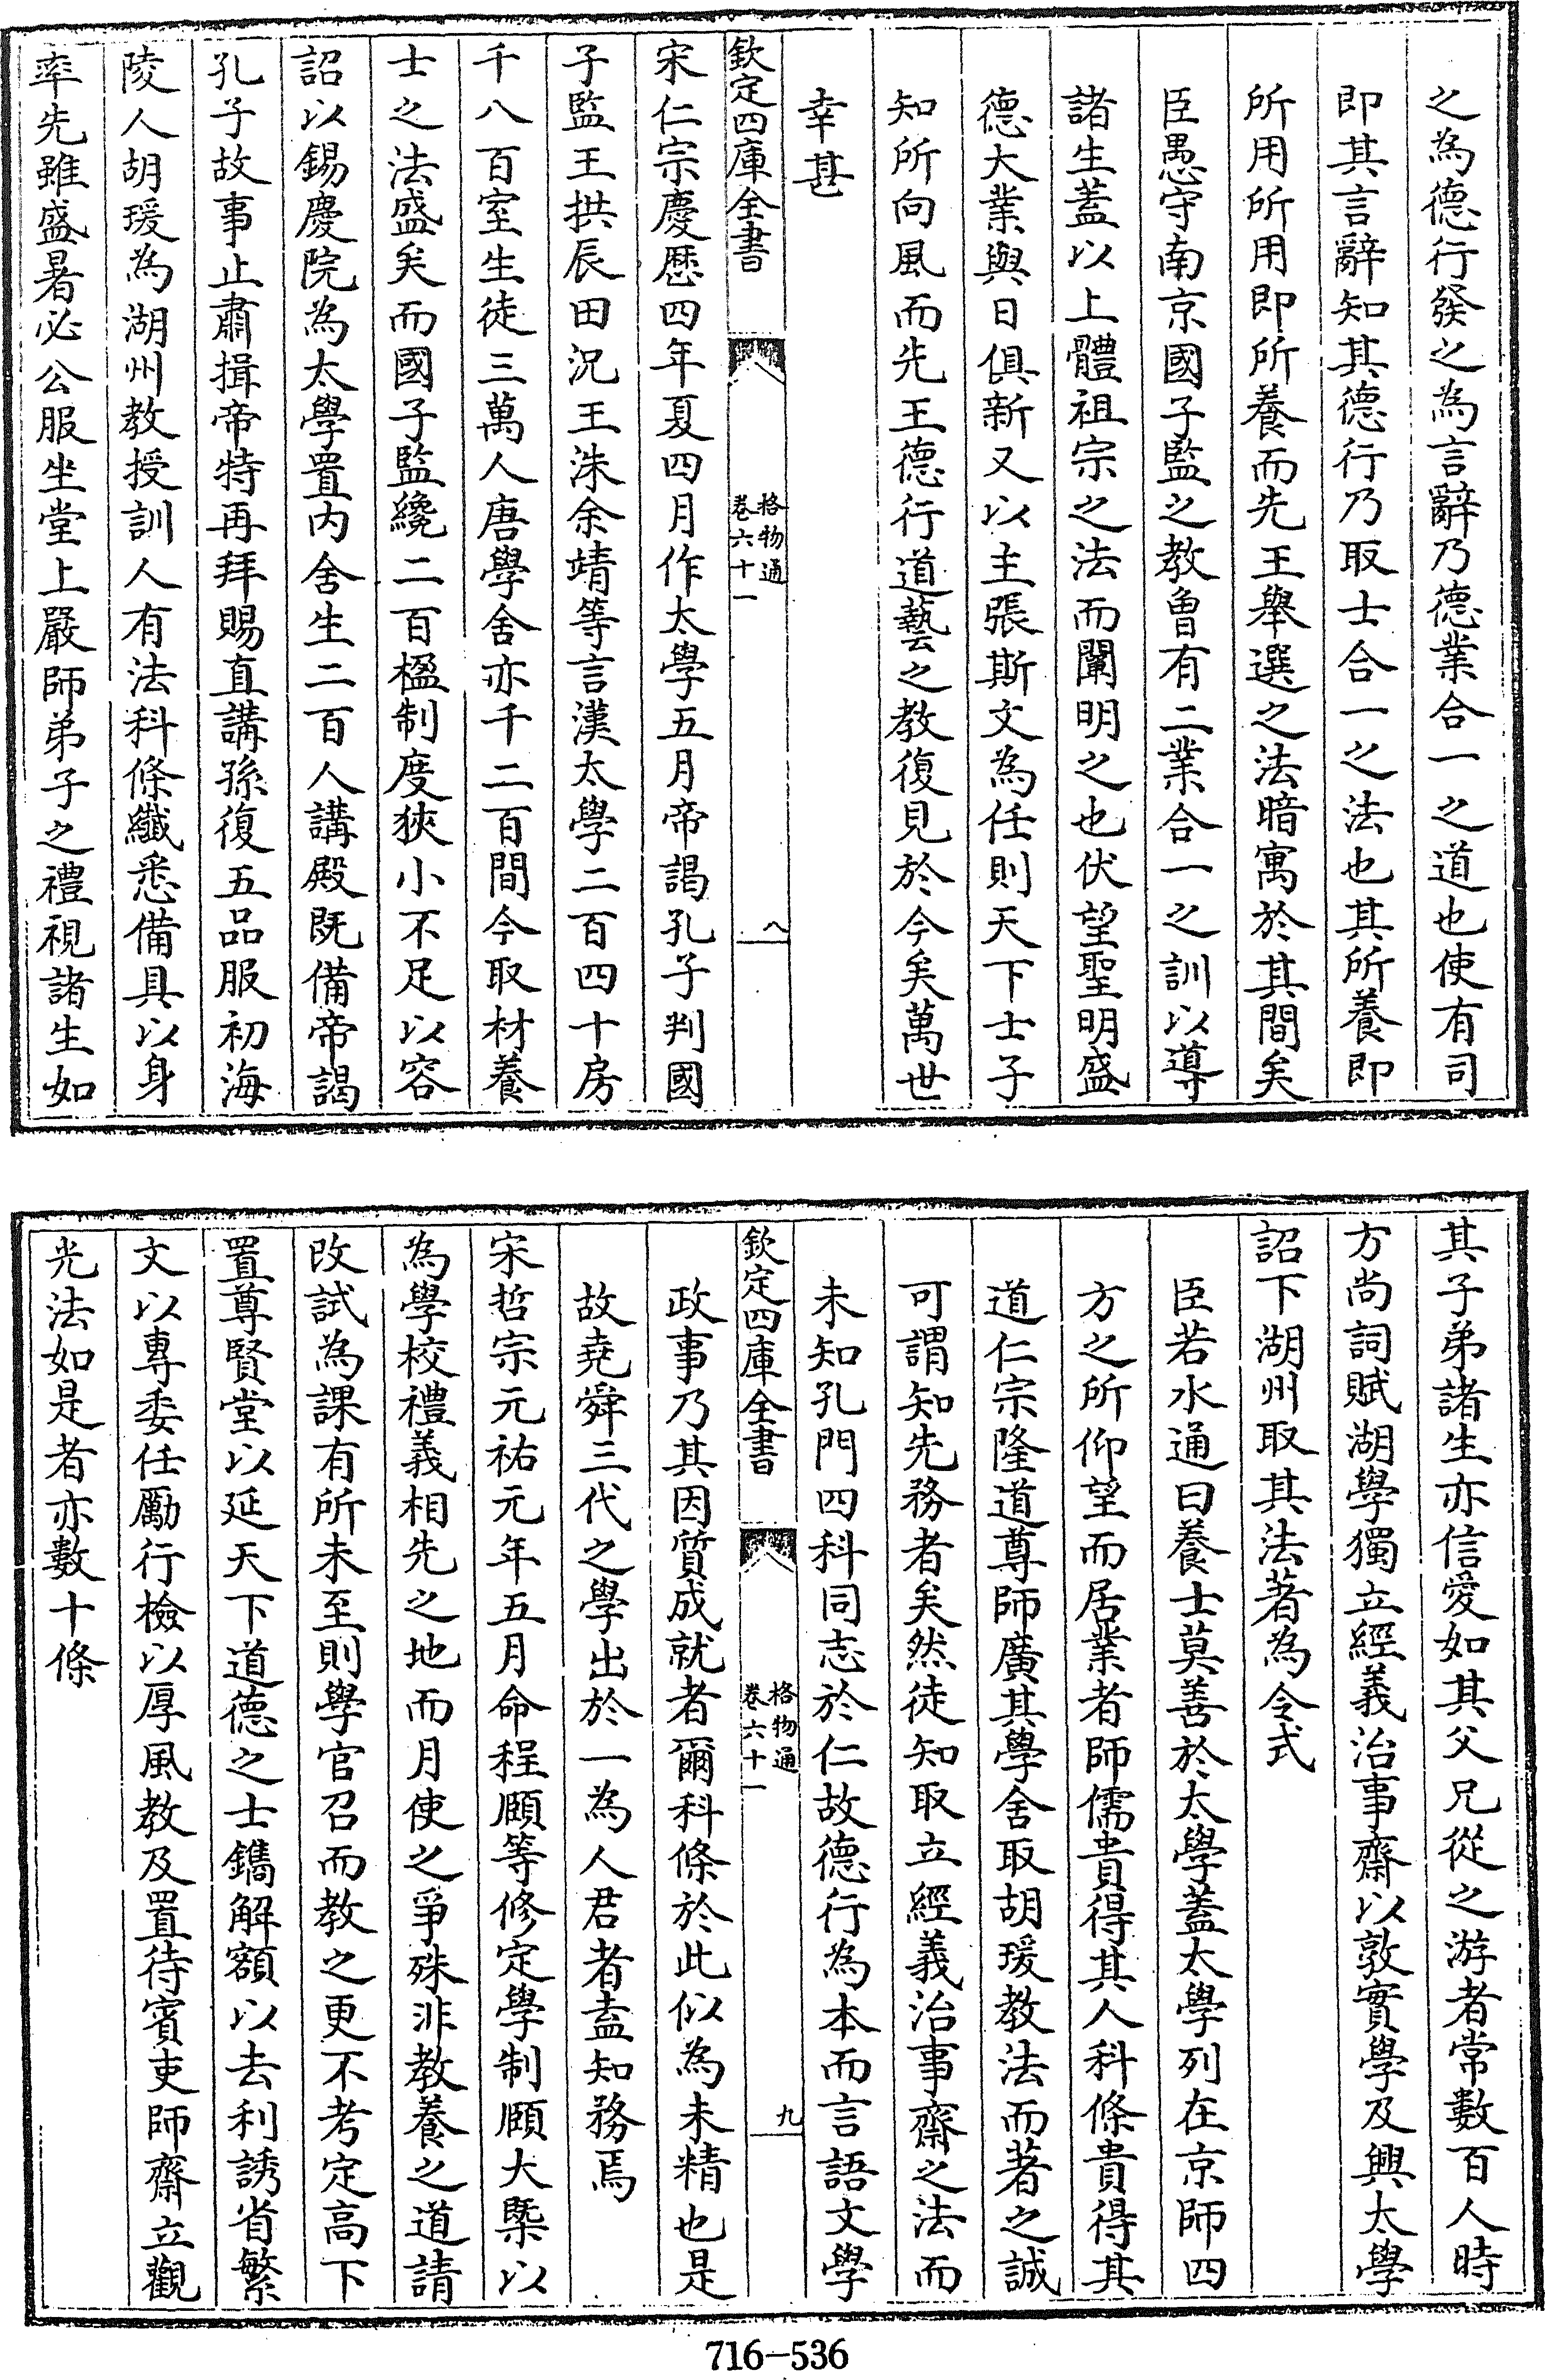 之為德行發之為言辭乃德業合一之道也使有司
即其言辭知其德行乃取士合一之法也其所養即
所用所用即所養而先王舉選之法暗寓於其間矣
臣愚守南京國子監之教曾有二業合一之訓以導
諸生蓋以上體祖宗之法而闡明之也伏望聖明盛
德大業與日俱新又以主張斯文為任則天下士子
知所向風而先王德行道藝之教復見於今矣萬世
幸甚
欽定四庫全書
格物通
卷六十一
八
宋仁宗慶歷四年夏四月作太學五月帝謁孔子判國
子監王拱辰田況王洙余靖等言漢太學二百四十房
千八百室生徒三萬人唐學舍亦千二百間今取材養
士之法盛矣而國子監纔二百楹制度狹小不足以容
詔以錫慶院為太學置内舍生二百人講殿既備帝謁
孔子故事止肅揖帝特再拜賜直講孫復五品服初海
陵人胡瑗為湖州教授訓人有法科條纖悉備具以身
率先雖盛暑必公服坐堂上嚴師弟子之禮視諸生如
其子弟諸生亦信愛如其父兄從之游者常數百人時
方尚詞賦湖學獨立經義治事齋以敦實學及興太學
詔下湖州取其法著為令式
臣若水通曰養士莫善於太學蓋太學列在京師四
方之所仰望而居業者師儒貴得其人科條貴得其
道仁宗隆道尊師廣其學舍取胡瑗教法而著之誠
可謂知先務者矣然徒知取立經義治事齋之法而
未知孔門四科同志於仁故德行為本而言語文學
欽定四庫全書
格物通
卷六十一
九
政事乃其因質成就者爾科條於此似為未精也是
故堯舜三代之學出於一為人君者盍知務焉
宋哲宗元祐元年五月命程頤等修定學制頤大槩以
為學校禮義相先之地而月使之爭殊非教養之道請
改試為課有所未至則學官召而教之更不考定高下
置尊賢堂以延天下道德之士鐫解額以去利誘省繁
文以專委任勵行檢以厚風教及置待賓吏師齋立觀
光法如是者亦數十條
716-536